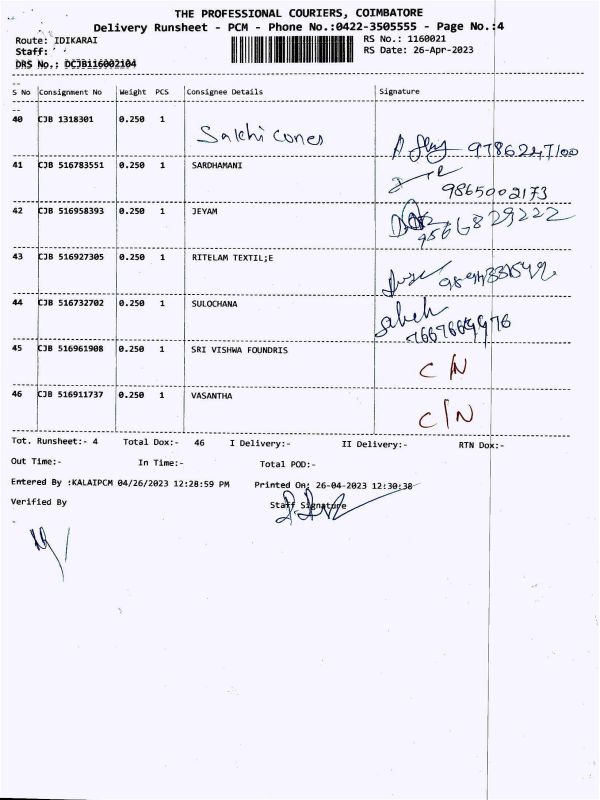 THE PROFESSIONAL COURIERS, COIMBATORE
Delivery Runsheet - PCM - Phone No.:0422-3505555 - Page No.:4
Route: IDIKARAI RS No.: 1160021
Staff: RS Date: 26-Apr-2023
DRS No.: DCJB116002104
S No Consignment No Weight PCS Consignee Details Signature
40 CJB 1318301 0.250 1 Sakthi cones 9786247100
41 CJB 516783551 0.250 1 SARDHAMANI 9865002173
42 CJB 516958393 0.250 1 JEYAM 9566829222
43 CJB 516927305 0.250 1 RITELAM TEXTIL;E
44 CJB 516732702 0.250 1 SULOCHANA
45 CJB 516961908 0.250 1 SRI VISHWA FOUNDRIS C/N
46 CJB 516911737 0.250 1 VASANTHA C/N
Tot. Runsheet:- 4 Total Dox:- 46 I Delivery:- II Delivery:- RTN Dox:-
Out Time:- In Time:- Total POD:-
Entered By :KALAIPCM 04/26/2023 12:28:59 PM Printed On: 26-04-2023 12:30:38
Verified By Staff Signature